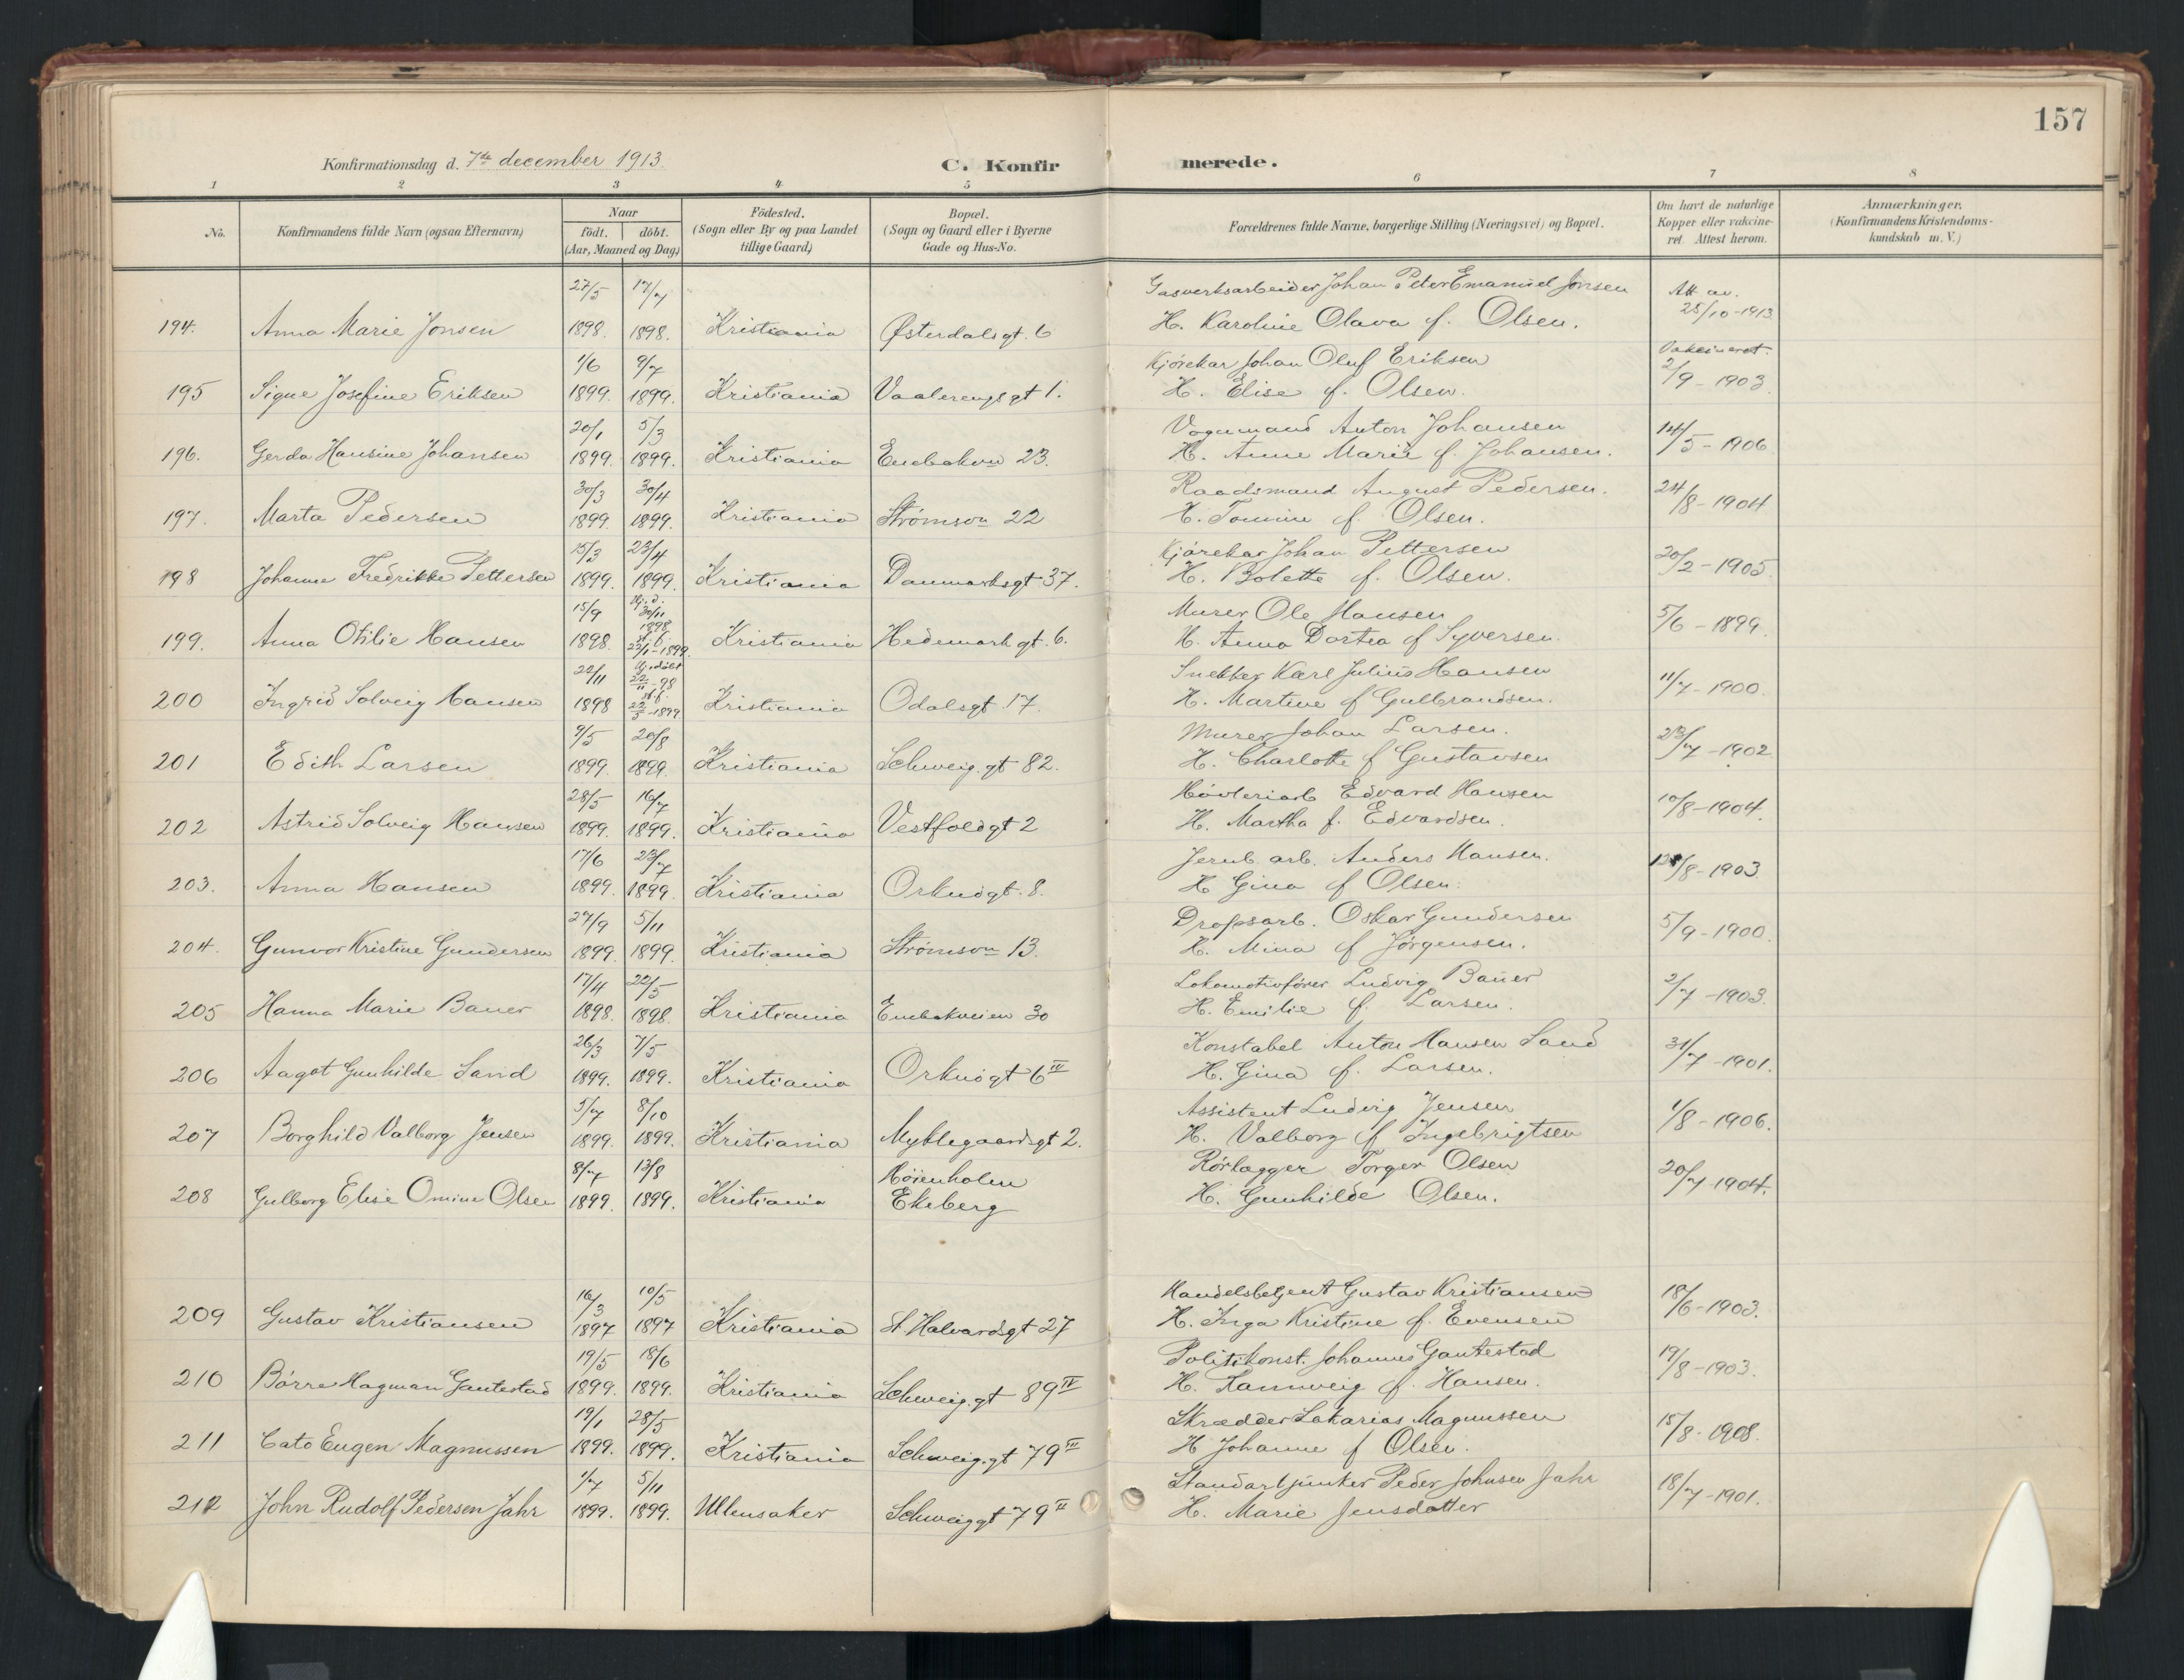 157
Konfirmationsdag d. 7de december 1913.
C. Konfirmerede.
1 2 3 4 5 6 7 8
No.
Konfirmandens fulde Navn (ogsaa Efternavn)
Naar
födt. döbt.
(Aar, Maaned og Dag)
Födested.
(Sogn eller By og paa Landet
tillige Gaard)
Bopæl.
(Sogn og Gaard eller i Byerne
Gade og Hus-No.
Forældrenes fulde Navne, borgerlige Stilling (Næringsvei) og Bopæl.
Om havt de naturlige
Kopper eller vakcine-
ret. Attest herom.
Anmærkninger.
(Konfirmandens Kristendoms-
kundskab m. V.)
27/5 17/7 Gasverksarbeider Johan Peter Emanuel Jonsen Att. av.
194. Anna Marie Jonsen 1898. 1898. Kristiania Østerdalsgt. 6 H. Karoline Olava f. Olsen. 25/10-1913
1/6 9/7 Kjörekar Johan Oluf Eriksen Vakcineret.
195 Signe Josefine Eriksen 1899. 1899. Kristiania Vaalerengsgt 1. H. Elise f. Olsen. 2/9-1903
20/1 5/3 Vognmand Anton Johansen
196. Gerda Hansine Johansen 1899. 1899. Kristiania Enebakvn 23. H. Anne Marie f. Johansen. 14/5-1906
30/3 30/4 Raadsmand August Pedersen.
197. Marta Pedersen 1899. 1899. Kristiania Strømsvn 22 H. Tomine f. Olsen. 24/8-1904
15/3 23/4 Kjørekar Johan Pettersen
198 Johanne Fredrikke Pettersen 1899. 1899. Kristiania Danmarksgt 37. H. Bolette f. Olsen. 20/2-1905
15/9 Hj. d. 30/11 1898 Murer Ole Hansen
199. Anna Otilie Hansen 1898. st. f. 22/1-1899. Kristiania Hedemarkgt. 6. H. Anna Dortea f. Syversen. 5/6-1899.
22/11 Hj. döbt 22/11-98 Snekker Karl Julius Hansen
200 Ingrid Solveig Hansen 1898 st. f. 22/5-1899 Kristiania Odalsgt. 17. H. Martine f. Gulbrandsen. 11/7-1900.
9/5 20/8 Murer Johan Larsen.
201 Edith Larsen 1899. 1899. Kristiania Schweig.gt 82. H. Charlotte f. Gustavsen 23/7-1902
28/5 16/7 Høvleriarb Edvard Hansen
202 Astrid Solveig Hansen 1899. 1899. Kristiania Vestfoldgt 2 H. Martha f. Edvardsen. 10/8-1904.
17/6 23/7 Jernb. arb. Anders Hansen.
203. Anna Hansen 1899. 1899. Kristiania Orknögt. 8. H. Gina f. Olsen. /8-1903
27/9 5/11 Dropsarb. Oskar Gundersen
204. Gunvor Kristine Gundersen 1899. 1899. Kristiania Strømsvn 13. H. Mina f. Jörgensen. 5/9-1900.
17/4 22/5 Lokomotivfører Ludvig Bauer
205 Hanna Marie Bauer 1898. 1898. Kristiania Enebakveien 30 H. Emilie f. Larsen. 2/7-1903.
26/3 7/5 Konstabel Anton Hansen Sand
206 Aagot Gunhilde Sand 1899. 1899. Kristiania Orknögt 6 III H. Gina f. Larsen. 31/7-1901.
5/7 8/10 Assistent Ludvig Jensen
207 Borghild Valborg Jensen 1899. 1899. Kristiania Myklegaardsgt 2. H. Valborg f. Ingebrigtsen 1/8-1906.
8/7 13/8 Høienholm Rörlægger Torger Olsen
208 Gulborg Elise Omine Olsen 1899. 1899. Kristiania Ekeberg H. Gunhilde Olsen. 20/7-1904.
16/3 10/5 Handelsbetjent Gustav Kristiansen
209 Gustav Kristiansen 1897 1897 Kristiania St. Halvardsgt 27 H. Inga Kristine f. Evensen 18/6-1903.
19/5 18/6 Politikonst. Johannes Gautestad
210 Börre Hagman Gautestad 1899. 1899. Kristiania Schweig.gt 89 IV H. Rannveig f. Hansen. 19/8-1903.
19/1 28/5 Skrædder Sakarias Magnussen
211 Cato Eugen Magnussen 1899. 1899. Kristiania Schweig.gt 79 III H. Johanne f. Olsen. 15/8-1908.
1/7 5/11 Standartjunker Peder Johnsen Jahr
212 John Rudolf Pedersen Jahr 1899. 1899. Ullensaker Schweiggt 79 II H. Marie Jensdatter 18/7-1901.